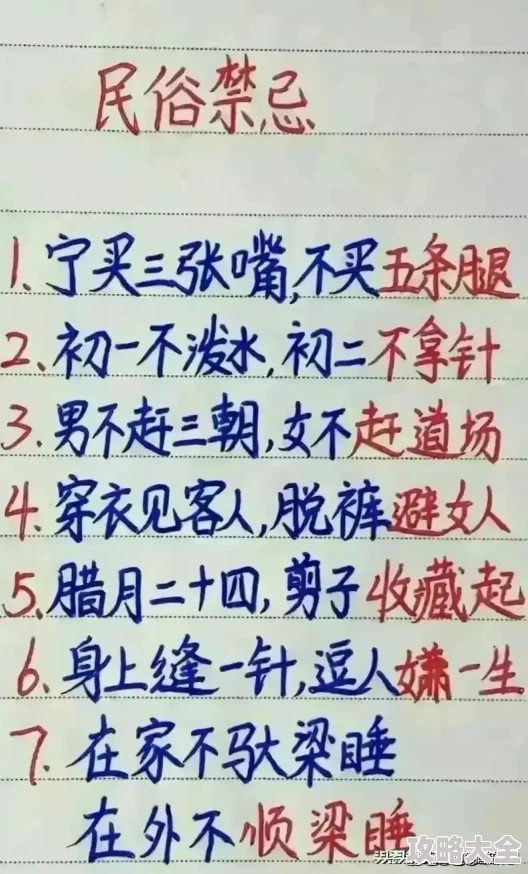 民俗禁忌
1.宁买三张嘴,不买五条腿
2.初一不泼水,初二不拿针
3.男不赶三朝,女不赶道场
4.穿衣见客人,脱裤避女人
5.腊月二十四,剪子收藏起
6.身上缝一针,逗人嫌一生
7.在家不驮梁睡
在外不顺梁睡
攻略大全